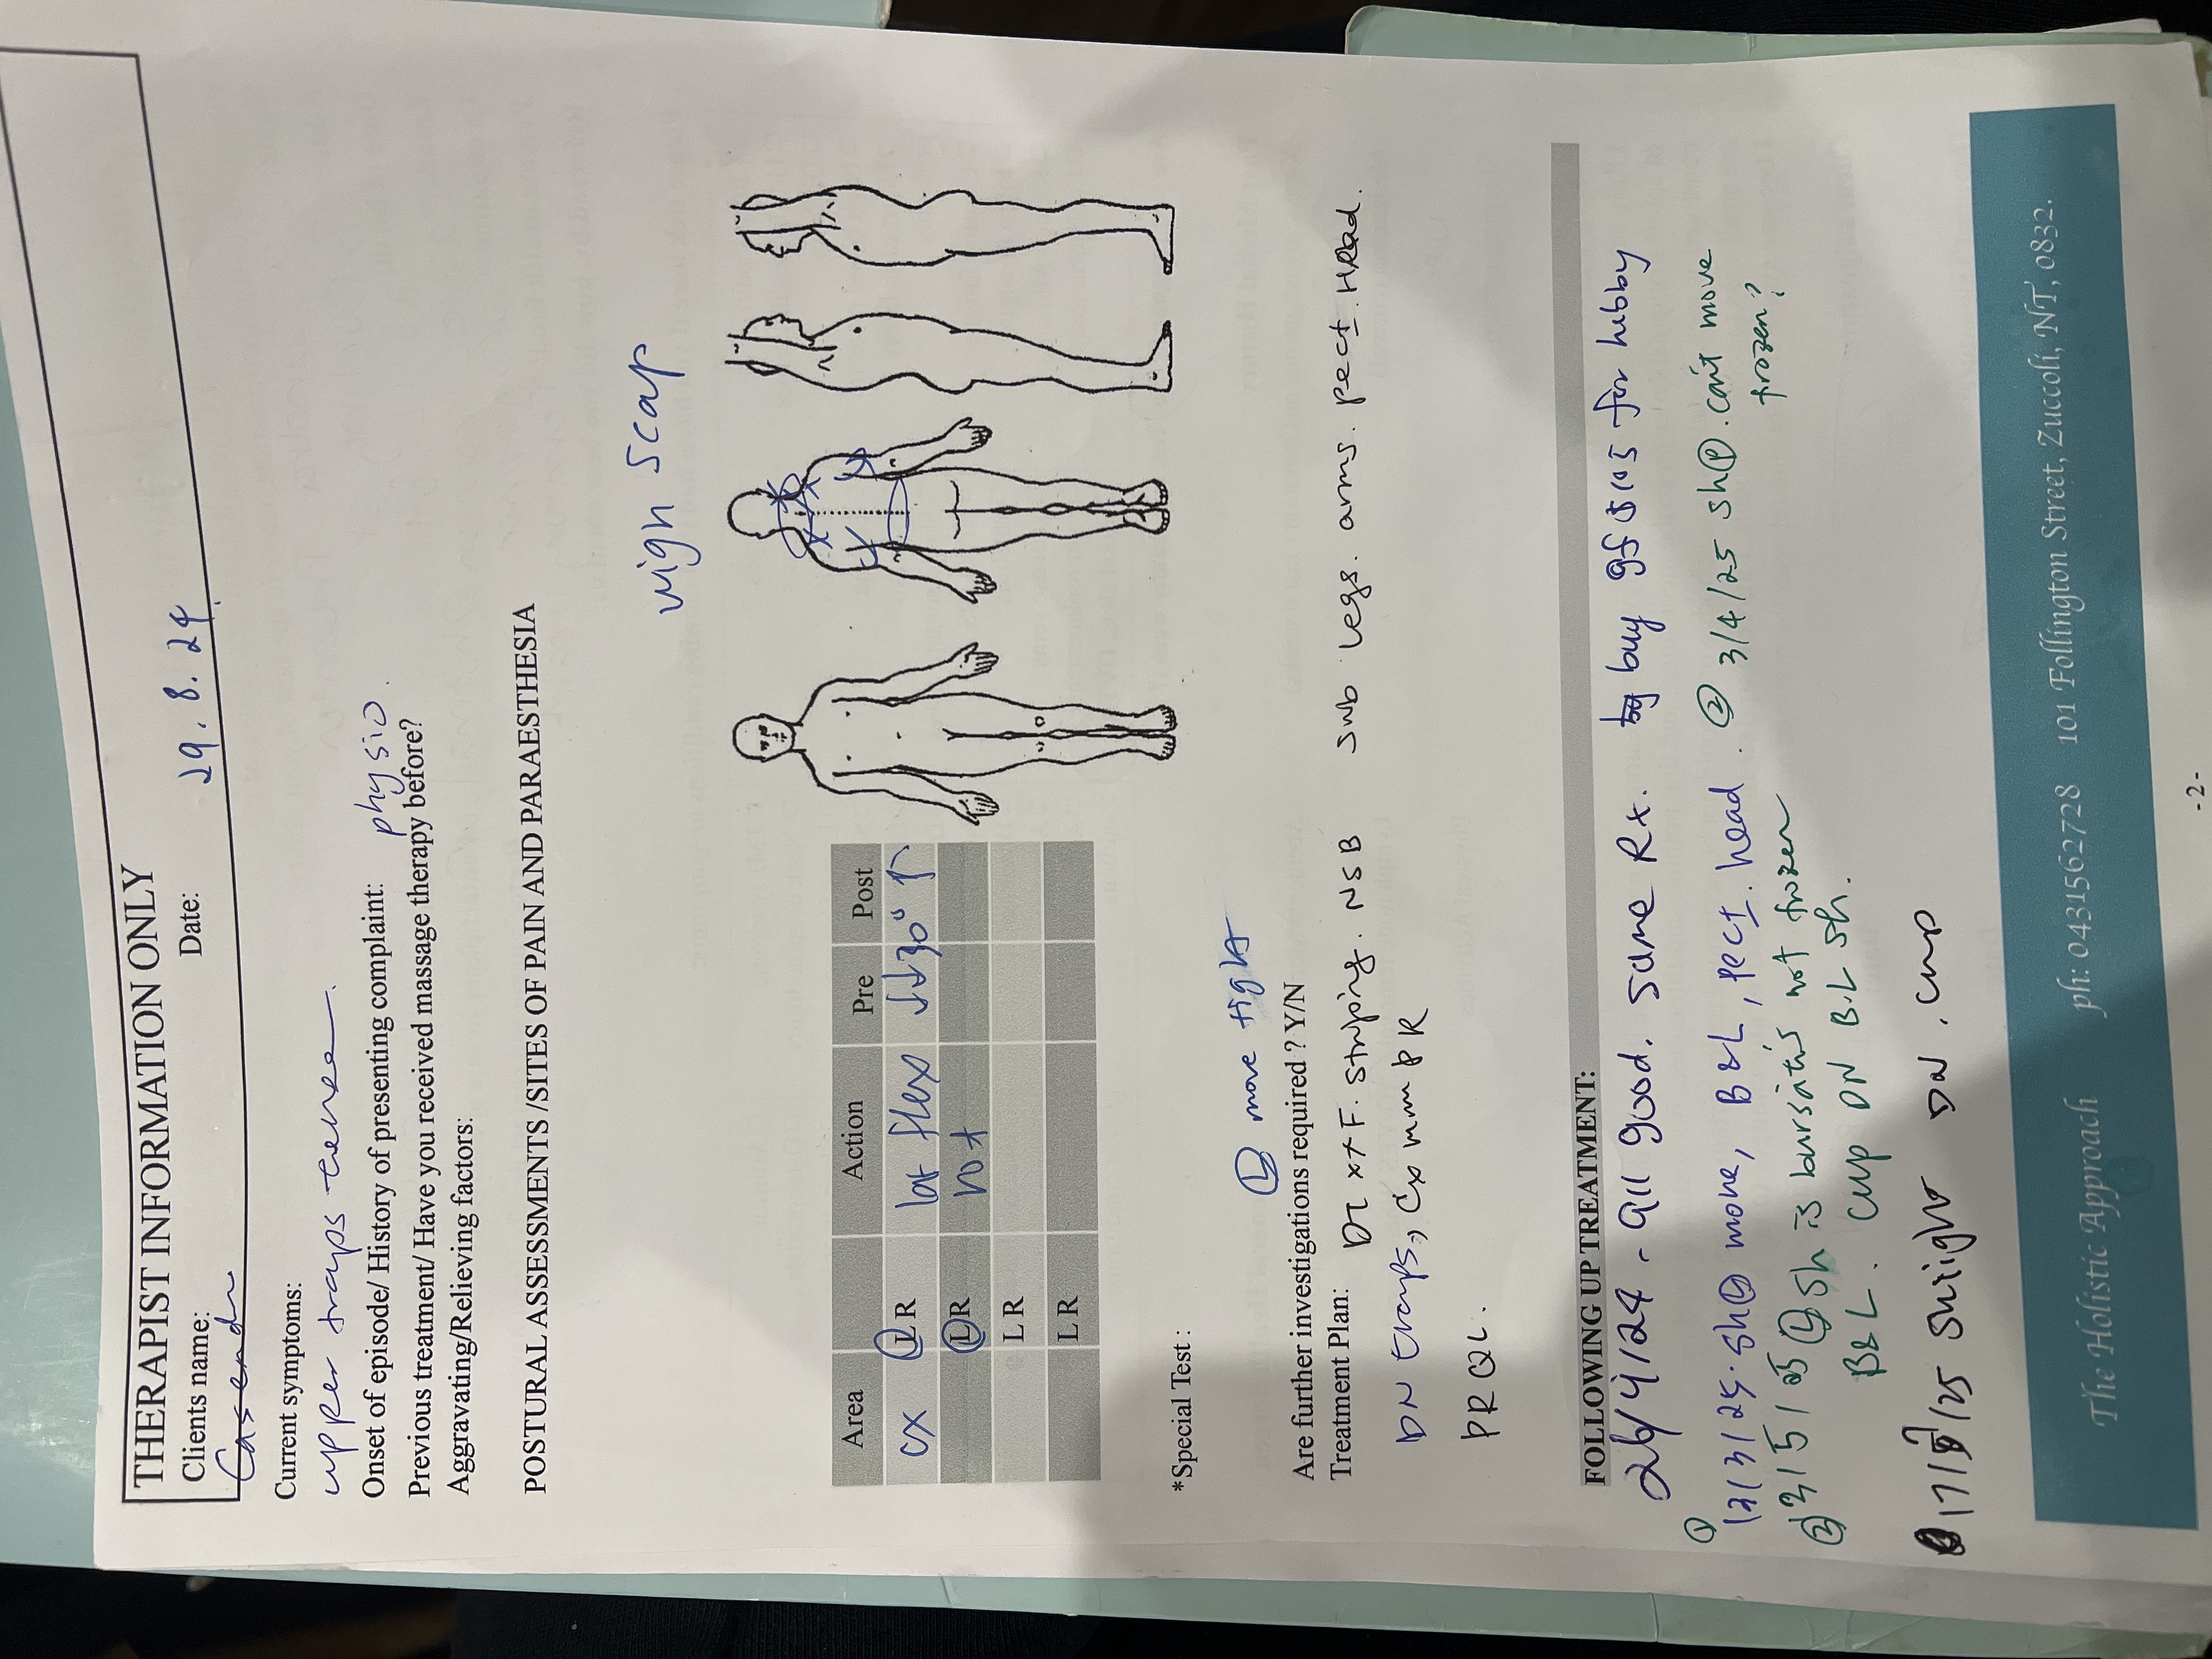 THERAPIST INFORMATION ONLY
Clients name: Date: 29.8.24
Current symptoms:
upper traps tense.
Onset of episode/ History of presenting complaint: physio.
Previous treatment/ Have you received massage therapy before?
Aggravating/Relieving factors:
POSTURAL ASSESSMENTS /SITES OF PAIN AND PARAESTHESIA
scap
Area Action Pre Post
cx L R lat flex ↓↓30° ↑
L R rot
L R
L R
*Special Test :
Ⓛ more tight
Are further investigations required ? Y/N
Treatment Plan: DT xxF. stripping. NSB sub legs. arms. pect ± Head.
DN traps, Cx mm PR
PR QL.
FOLLOWING UP TREATMENT:
26/9/24 - all good. same Rx. buy for hubby
① 12/3/25. sh more, B&L, pect ± head. ② 3/4/25 sh. can't move
frozen?
② Ⓛ sh is bursitis not frozen
B&L. cup DN B.L sh.
DN. cup
The Holistic Approach ph: 0431562728 101 Follington Street, Zuccoli, NT, 0832.
- 2 -